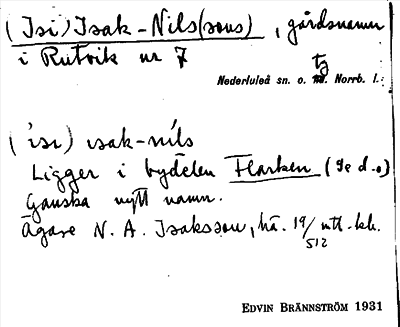 (Isi) Isak-Nils(sons), gårdsnamn
i Rutvik nr 7
tg
Nederluleå sn. o. hd. Norrb. l.
('isi) ısak-níls
Ligger i bydelen Flarken (se d.o)
Ganska nytt namn.
Ägare N. A. Isaksson, hä. 19/512 mtl. kr.
EDVIN BRÄNNSTRÖM 1931